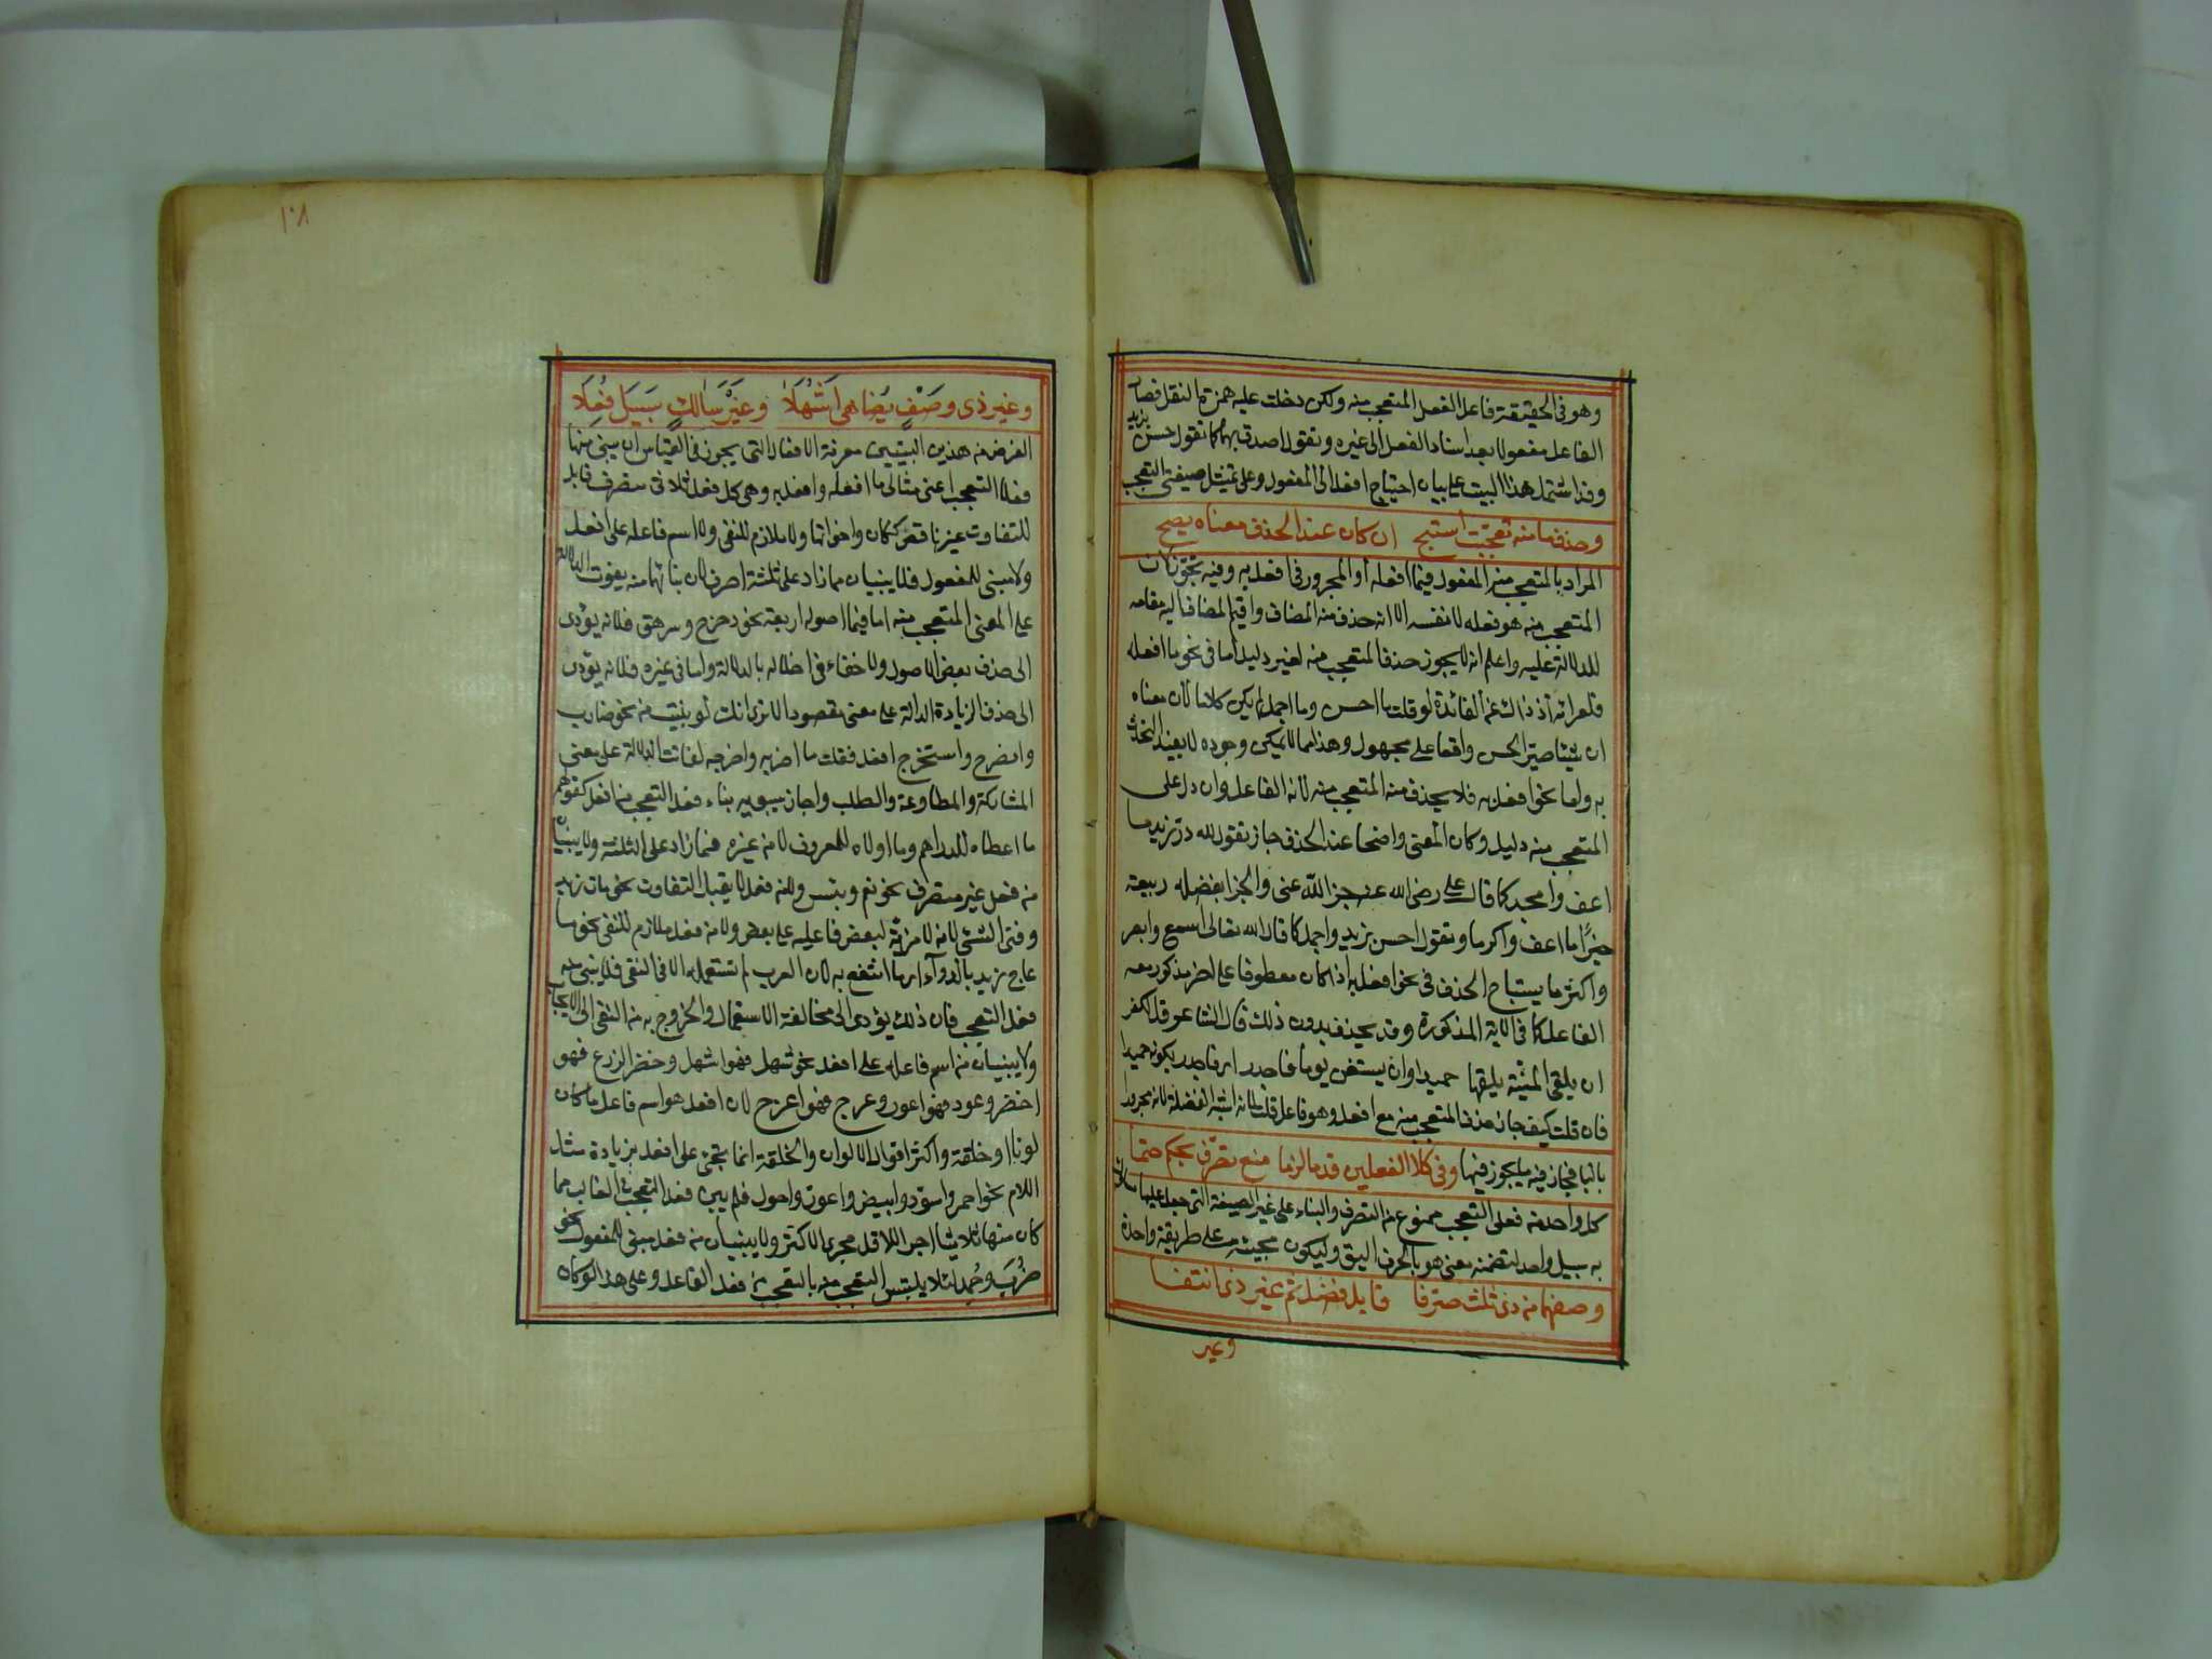 وهو في الحقيقة فاعل الفعل المتعجب منه ولكن دخلت عليه همزة النقل فصار
الفاعل مفعولا بعد اسناد الفعل الى غيره وتقول اصدق بهما كما تقول حسن بزيد
وقد اشتمل هذا البيت على بيان احتياج افعل الى المفعول وعلى تمثيل صيغتي التعجب
وحذف ما منه تعجبت استبح ان كان عند الحذف معناه يصح
المراد بالمتعجب منه المفعول في ما افعله أو المجرور في افعل به وفيه تجوز لان
المتعجب منه هو فعله لا نفسه الا انه حذف منه المضاف واقيم المضاف اليه مقامه
للدلالة عليه واعلم انه لا يجوز حذف المتعجب منه لغير دليل أما في نحو ما افعله
فلعرائه اذ ذاك عن الفائدة لو قلت ما احسن وما اجمل لم يكن كلاما لان معناه
ان شيئا صير الحسن واقعا على مجهول وهذا مما لا يمكن وجوده لا يفيد التحدث
به واما نحو افعل به فلا يحذف منه المتعجب منه لانه الفاعل وان دل على
المتعجب منه دليل وكان المعنى واضحا عند الحذف جاز تقول لله در زيد ما
اعف وامجد كما قال على رضى الله عنه جزا الله عنى والجزا بفضله ربيعة
خيرًا ما اعف واكرما وتقول احسن بزيد واجمل كما قال الله تعالى اسمع وابصر
واكثر ما يستباح الحذف في نحو افعل به اذا كان معطوفا على اخر مذكور معه
الفاعل كما في الاية المذكورة وقد يحذف بدون ذلك قال الشاعر فذلك
ان يلقى المنية يلقها حميدا وان يستغن يوما فاجدر اى فاجدر بكونه حميدا
فان قلت كيف جاز حذف المتعجب منه مع افعل وهو فاعل قلت لانه اشبه الفضلة لانه مجرور
بالبا فجاز فيه ما يجوز فيها وفى كلا الفعلين قدما لزما منع تصرّف بحكم حتما
كل واحد من فعلى التعجب ممنوع من التصرف والبناء على غير الصيغة التى جعل عليها
به سبيل واحد لتضمنه معنى هو بالحرف اليق وليكون مجيئه على طريقة واحدة
وصغهما من ذى ثلث صرفا قابل فضل تم غير ذى انتفا
وغير
١٠٨
وغير ذى وصف يضاهى اشهلا وغير سالك سبيل فعلا
الغرض من هذين البيتين معرفة الافعال التى يجوز في القياس ان يبنى منها
فعلا التعجب اعنى مثالى ما افعله وافعل به وهى كل فعل ثلاثى متصرف قابل
للتفاوت غير ناقص ككان واخواتها ولا ملازم للنفى ولا اسم فاعله على افعل
ولا مبنى للمفعول فلا يبنيان مما زاد على ثلثة احرف لان بناتهما منه يفوت الدلالة
على المعنى المتعجب منه اما فيما اصوله اربعة نحو دحرج وسرهق فلانه يؤدى
الى حذف بعض الاصول ولا خفاء في اخلاله بالدلالة واما في غيره فلانه يؤدى
الى حذف الزيادة الدالة على معنى مقصود الا ترى انك لو بنيت من نحو ضارب
وانضرح واستخرج افعل فقلت ما اضربه واخرجه لفاتت الدلالة على معنى
المشاركة والمطاوعة والطلب واجاز سيبويه بناء فعل التعجب من افعل كقولهم
ما اعطاه للدراهم وما اولاه للمعروف لا من غيره فما زاد على الثلثة ولا يبنيان
من فعل غير متصرف نحو نعم وبئس ولا من فعل لا يقبل التفاوت نحو مات زيد
وفنى الشئ لانه لا مزية لبعض فاعليه على بعض ولا من فعل ملازم للنفى نحو ما
عاج زيد بالدوآء اى ما انتفع به لان العرب لم تستعمله الا في النفى فلا يبنى منه
فعل التعجب فان ذلك يؤدى الى مخالفة الاستعمال والخروج به من النفى الى الايجاب
ولا يبنيان من اسم فاعله على افعل نحو شهل فهو اشهل وخضر الزرع فهو
اخضر وعور فهو اعور وعرج فهو اعرج لان افعل هو اسم فاعل ما كان
لونا او خلقة واكثر افعال الالوان والخلقة انما تجئ على افعل بزيادة مثل
اللام نحو احمر واسود وابيض واعور واحول فلم يبن فعل التعجب في الغالب مما
كان منها ثلاثيا اجراء للاقل مجرى الاكثر ولا يبنيان من فعل مبنى للمفعول نحو
ضُرِبَ وحُمِد لئلا يلتبس التعجب منه بالتعجب من فعل الفاعل وعلى هذا لو كان